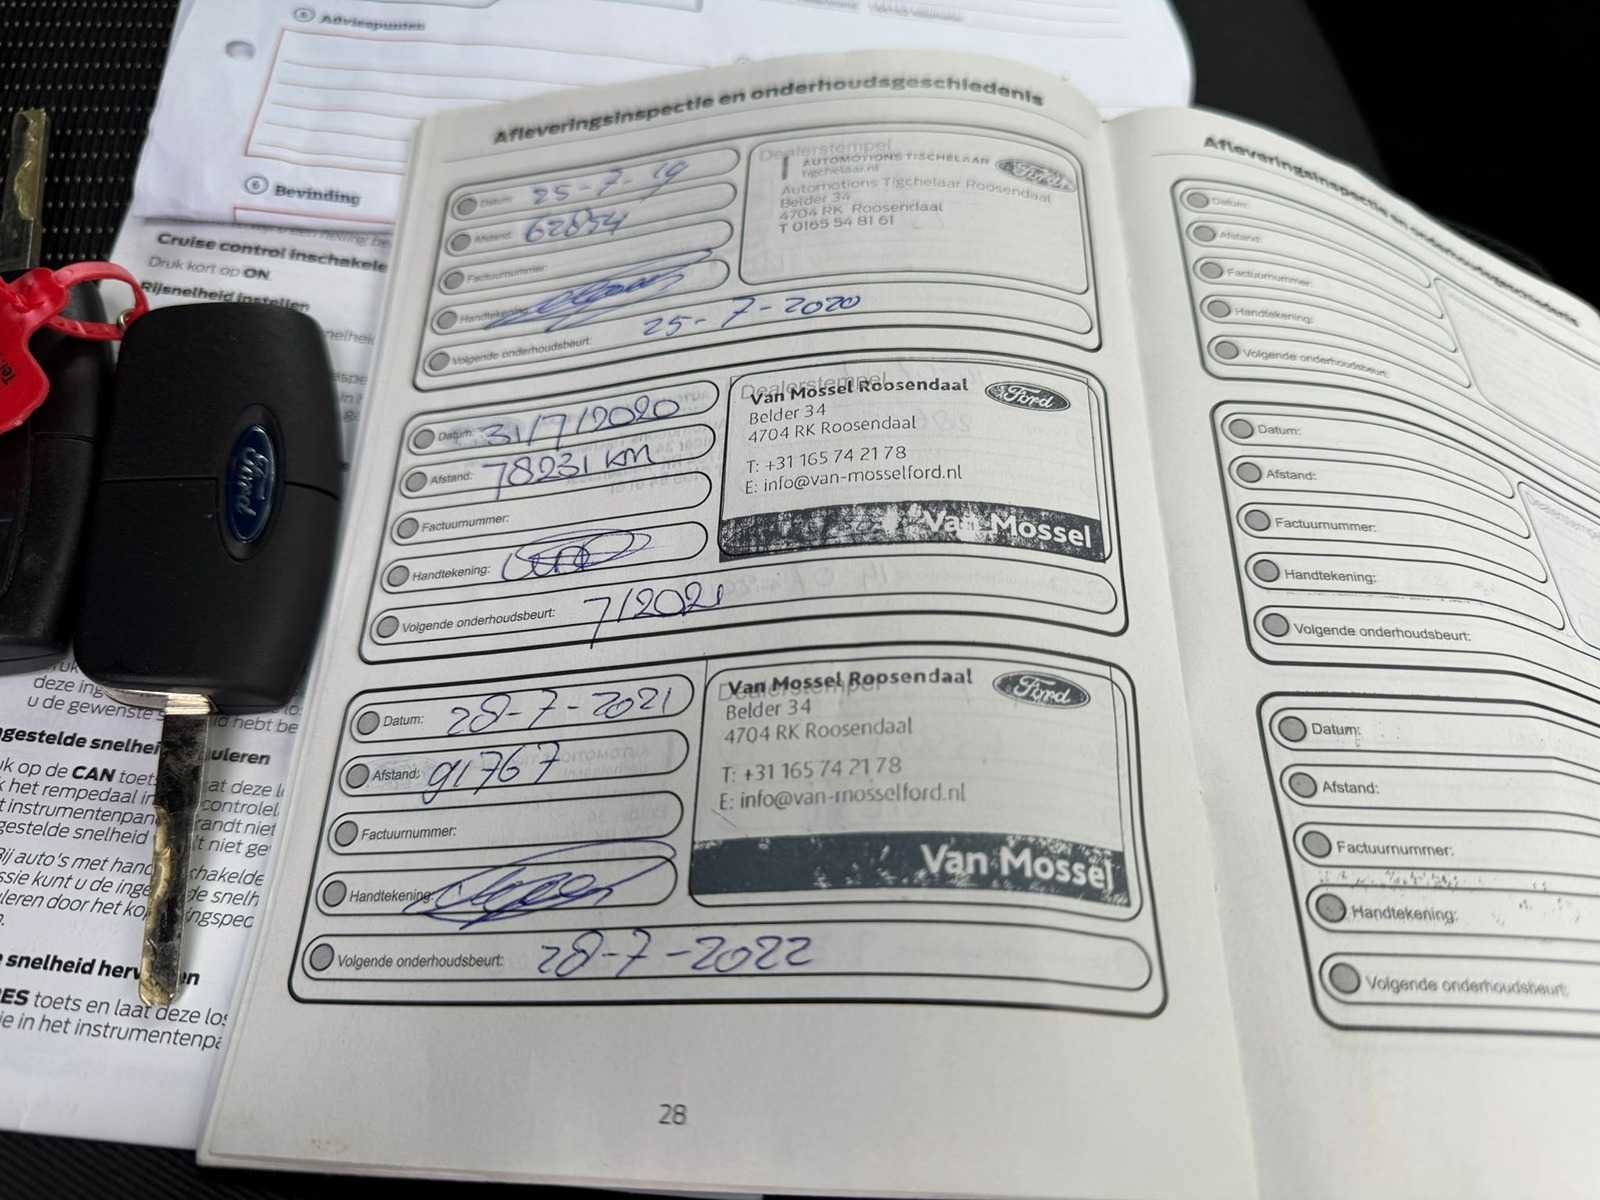 6 Adviespunten
6 Bevinding
Cruise control inschakele
Druk kort op ON.
Rijsnelheid instellen
Ford
deze ing
u de gewenste s
d hebt be
uleren
k op de CAN toets
at deze l
k het rempedaal in
controlel
t instrumentenpan
randt niet
gestelde snelheid
lt niet ge
Bij auto's met hand
schakelde
ssie kunt u de inge
de snelh
leren door het ko
ingsped
e snelheid herv
en
RES toets en laat deze los
ie in het instrumentenpa
Afleveringsinspectie en onderhoudsgeschiedenis
Datum: 25-7-19
Afstand: 62854
Factuurnummer:
Handtekening:
Volgende onderhoudsbeurt: 25-7-2020
Dealerstempel
AUTOMOTIONS TISCHELAAR
tigchelaar.nl
Ford
Automotions Tigchelaar Roosendaal
Belder 34
4704 RK Roosendaal
T 0165 54 81 61
Datum: 31/7/2020
Afstand: 78231 KM
Factuurnummer:
Handtekening:
Volgende onderhoudsbeurt: 7/2021
Dealerstempel
Van Mossel Roosendaal
Ford
Belder 34
4704 RK Roosendaal
T: +31 165 74 21 78
E: info@van-mosselford.nl
Van Mossel
Datum: 28-7-2021
Afstand: 91767
Factuurnummer:
Handtekening:
Volgende onderhoudsbeurt: 28-7-2022
Dealerstempel
Van Mossel Roosendaal
Ford
Belder 34
4704 RK Roosendaal
T: +31 165 74 21 78
E: info@van-mosselford.nl
Van Mossel
28
Afleveringsinspectie en onderhoudsgeschiedenis
Datum:
Afstand:
Factuurnummer:
Handtekening:
Volgende onderhoudsbeurt:
Datum:
Afstand:
Factuurnummer:
Handtekening:
Volgende onderhoudsbeurt:
Datum:
Afstand:
Factuurnummer:
Handtekening:
Volgende onderhoudsbeurt: